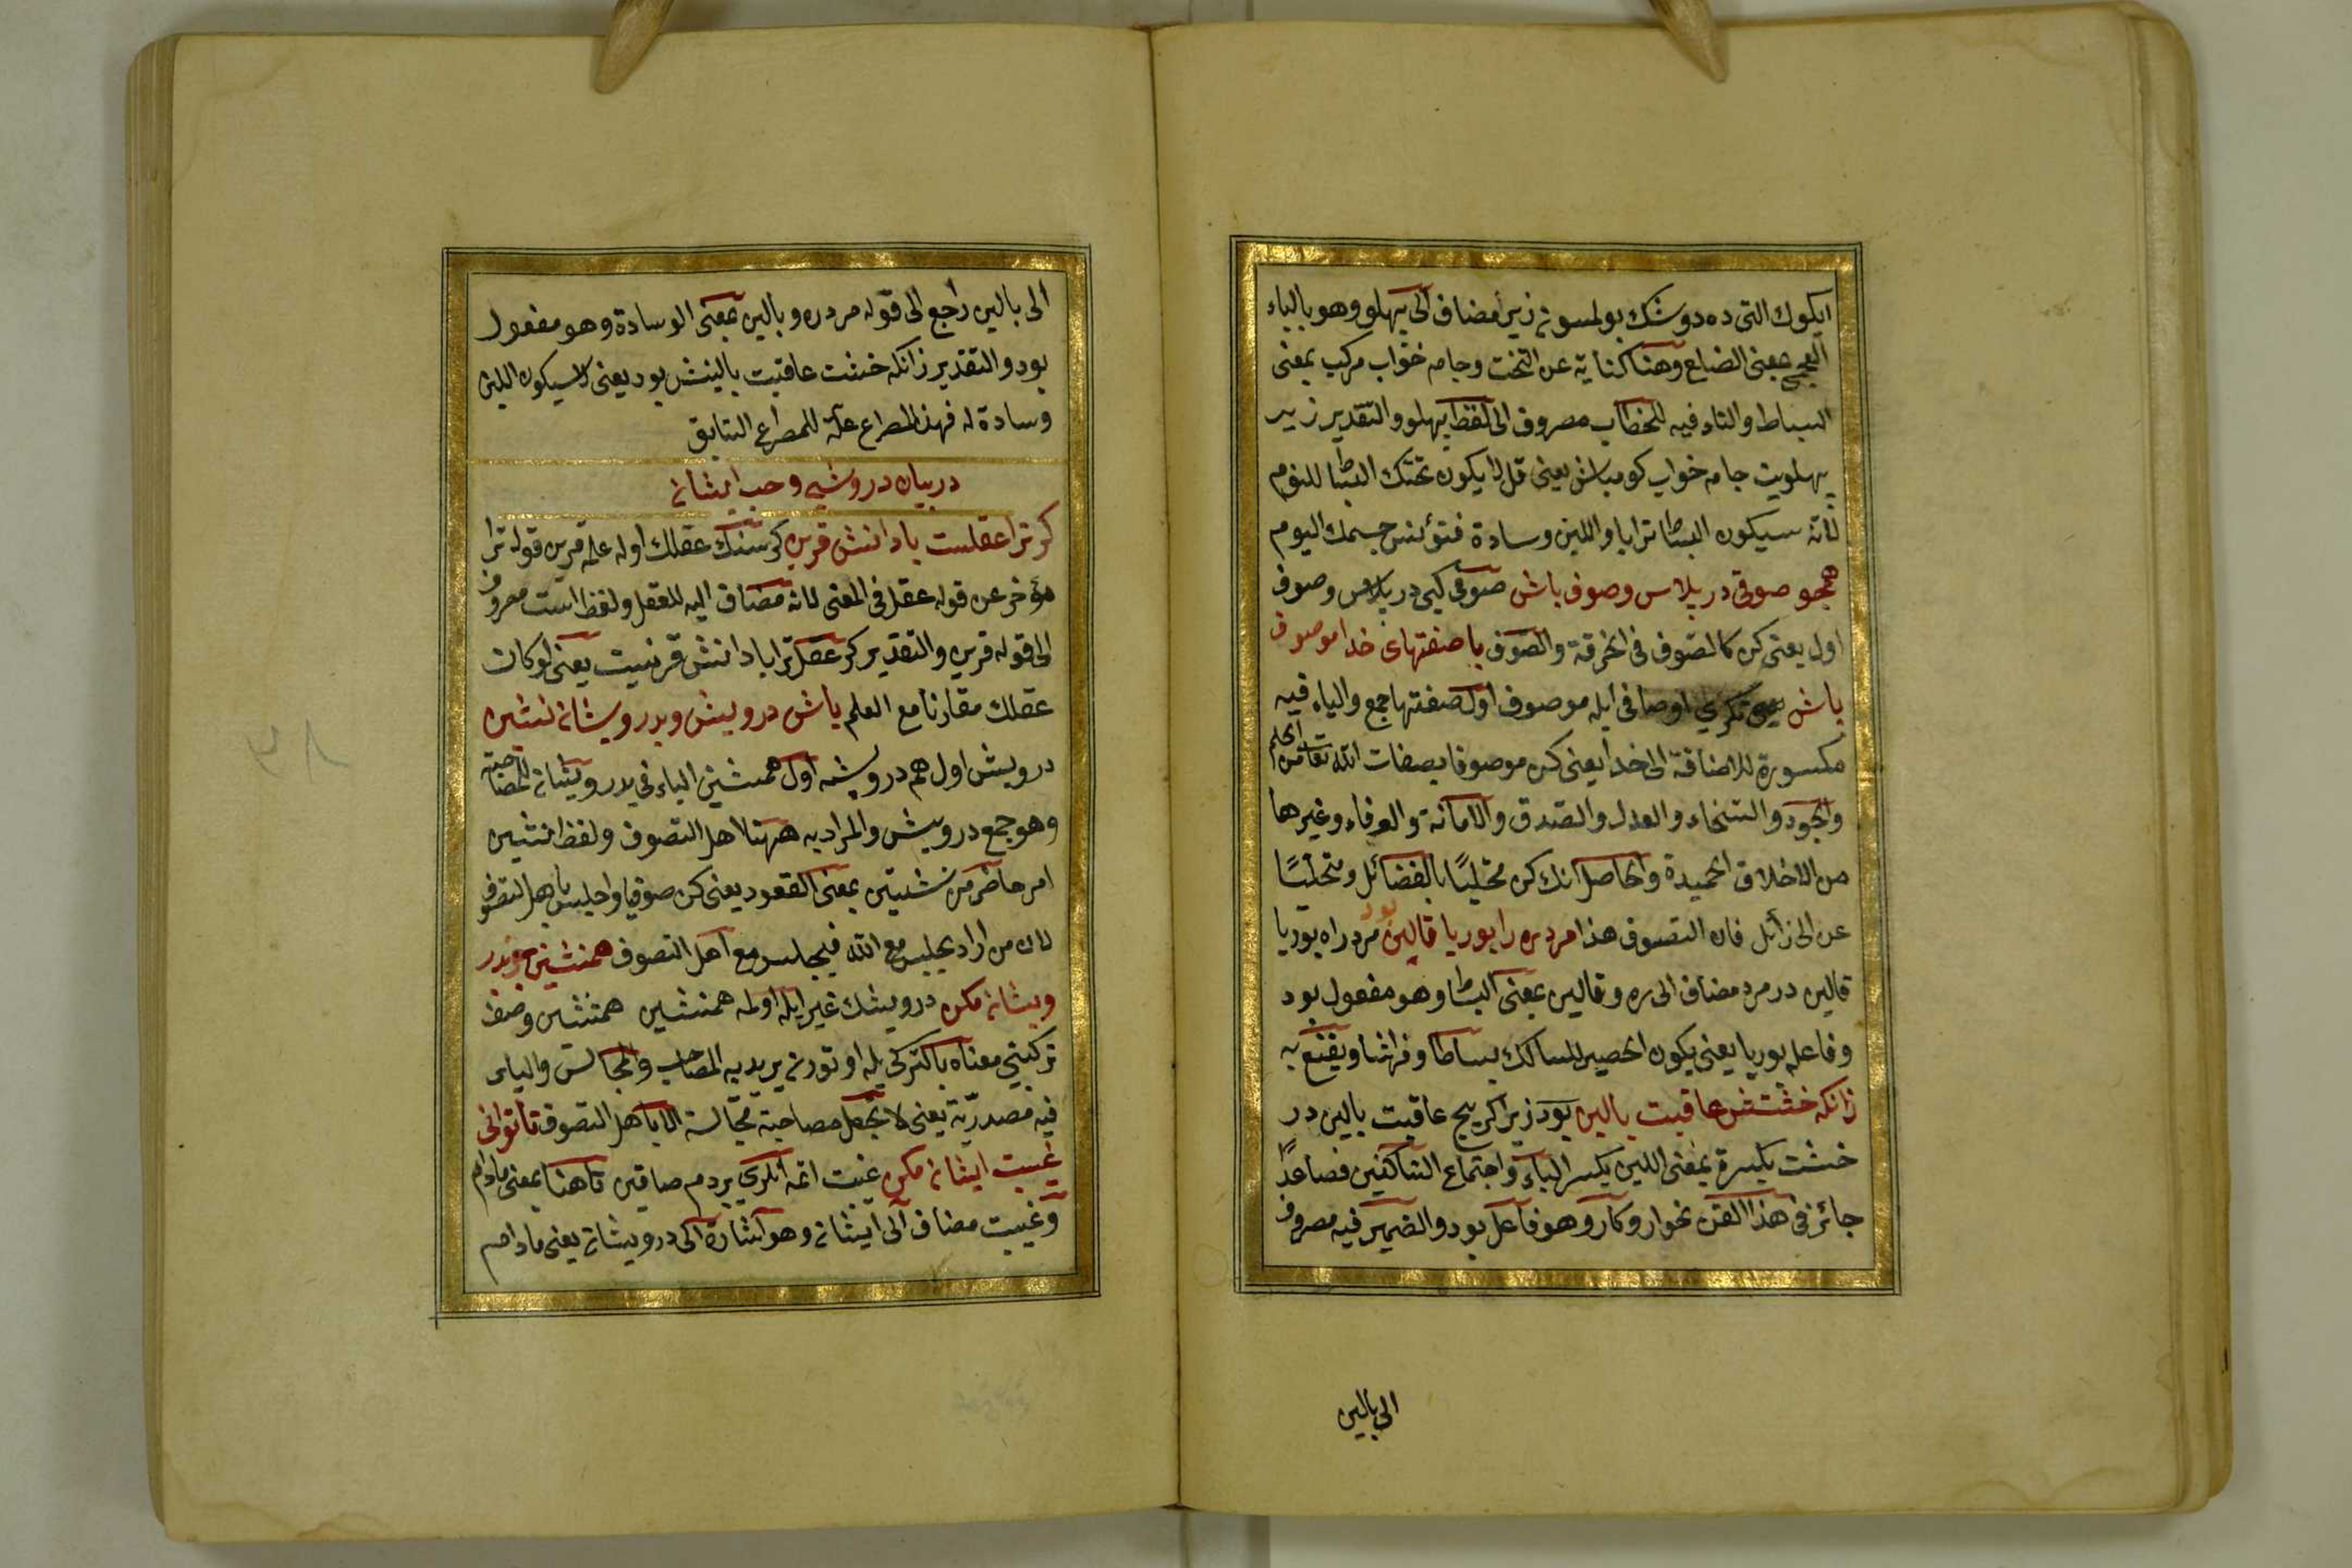 ايكوك التى ده دوشك بولمسون زير مضاف الى پهلو وهو بالباء
العجمى بمعنى الضلع وهنا كناية عن التخت وجامه خواب مركب بمعنى
البساط والتاء فيه للخطاب مصروف الى لفظ پهلو والتقدير زير
پهلويت جامه خواب كو مباش يعنى قل لا يكون تحتك البساط للنوم
لانه سيكون البساط ترابا واللبن وسادة فتؤنس جسمك اليوم
همچو صوفى در پلاس وصوف باش صوفى كبى در پلاس وصوف
اول يعنى كن كالصوف فى الخرقة والصوف با صفتهاى خدا موصوف
باش تكرى اوصافى ايله موصوف اول صفتها جمع والياء فيه
مكسورة للاضافة الى خدا يعنى كن موصوفا بصفات الله تعا من الحلم
والجود والسخاء والعدل والصدق والامانة والعرفاء وغيرها
من الاخلاق الحميدة والحاصل انك كن متحليًا بالفضائل ومتخليًا
عن الرزائل فان التصوف هذا مرد ره را بوريا قالين بود مرد راه بوريا
قالين در مرد مضاف الى ره وقالين بمعنى البساط وهو مفعول بود
وفاعله بوريا يعنى يكون الحصير للسالك بساطا وفراشا ويقنع به
زانكه خشتش عاقبت بالين بود زيرا كربيج عاقبت بالين در
خشت بكسرة بمعنى اللبن بكسر الباء واجتماع الساكنين فصاعدًا
جائز فى هذا الفن نحو ارد وكارد وهو فاعل بود والضمير فيه مصروف
الى بالين
الى بالين راجع الى قوله مرد ره وبالين بمعنى الوسادة وهو مفعول
بود والتقدير زانكه خشت عاقبت بالينش بود يعنى لانه سيكون اللبن
وسادة له فهذا المصراع علة للمصراع السابق
در بيان درويشى وحب ايشان
كر ترا عقلست با دانش قرين كر سنك عقلك اوله علمه قرين قوله ترا
مؤخر عن قوله عقل فى المعنى لانه مضاف اليه للعقل ولفظ است مصروف
الى قوله قرين والتقدير كر عقل ترا با دانش قرنيت يعنى لو كان
عقلك مقارنا مع العلم باش درويش وبدرويشان نشين
درويش اول هم درويشه اول همنشين الباء فى بدرويشان للمصاحبة
وهو جمع درويش والمراد به ههنا اهل التصوف ولفظ نشين
امر حاضر من نشستن بمعنى القعود يعنى كن صوفيا واجلس باهل التصوف
لان من اراد يجلس مع الله فيجلس مع اهل التصوف همنشين جز بدر
ويشان مكن درويشك غيرايله اولمه همنشين همنشين وصف
تركيبى معناه بالتركى بله اوتورن يريد به المصاحب والمجالس والياء
فيه مصدرية يعنى لا تجعل مصاحبة مجالسة الا باهل التصوف تا توانى
غيبت ايشان مكن غيبت اتمه انلرى بردم صاقين تا هنا بمعنى مادام
وغيبت مضاف الى ايشان وهو اشارة الى درويشان يعنى مادام